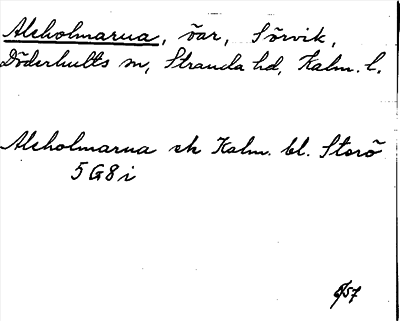 Alcholmarna, öar, Sörvik,
Döderhults sn, Stranda hd, Kalm. l.
Alcholmarna ek Kalm. bl. Storö
5 G 8 i
6/57